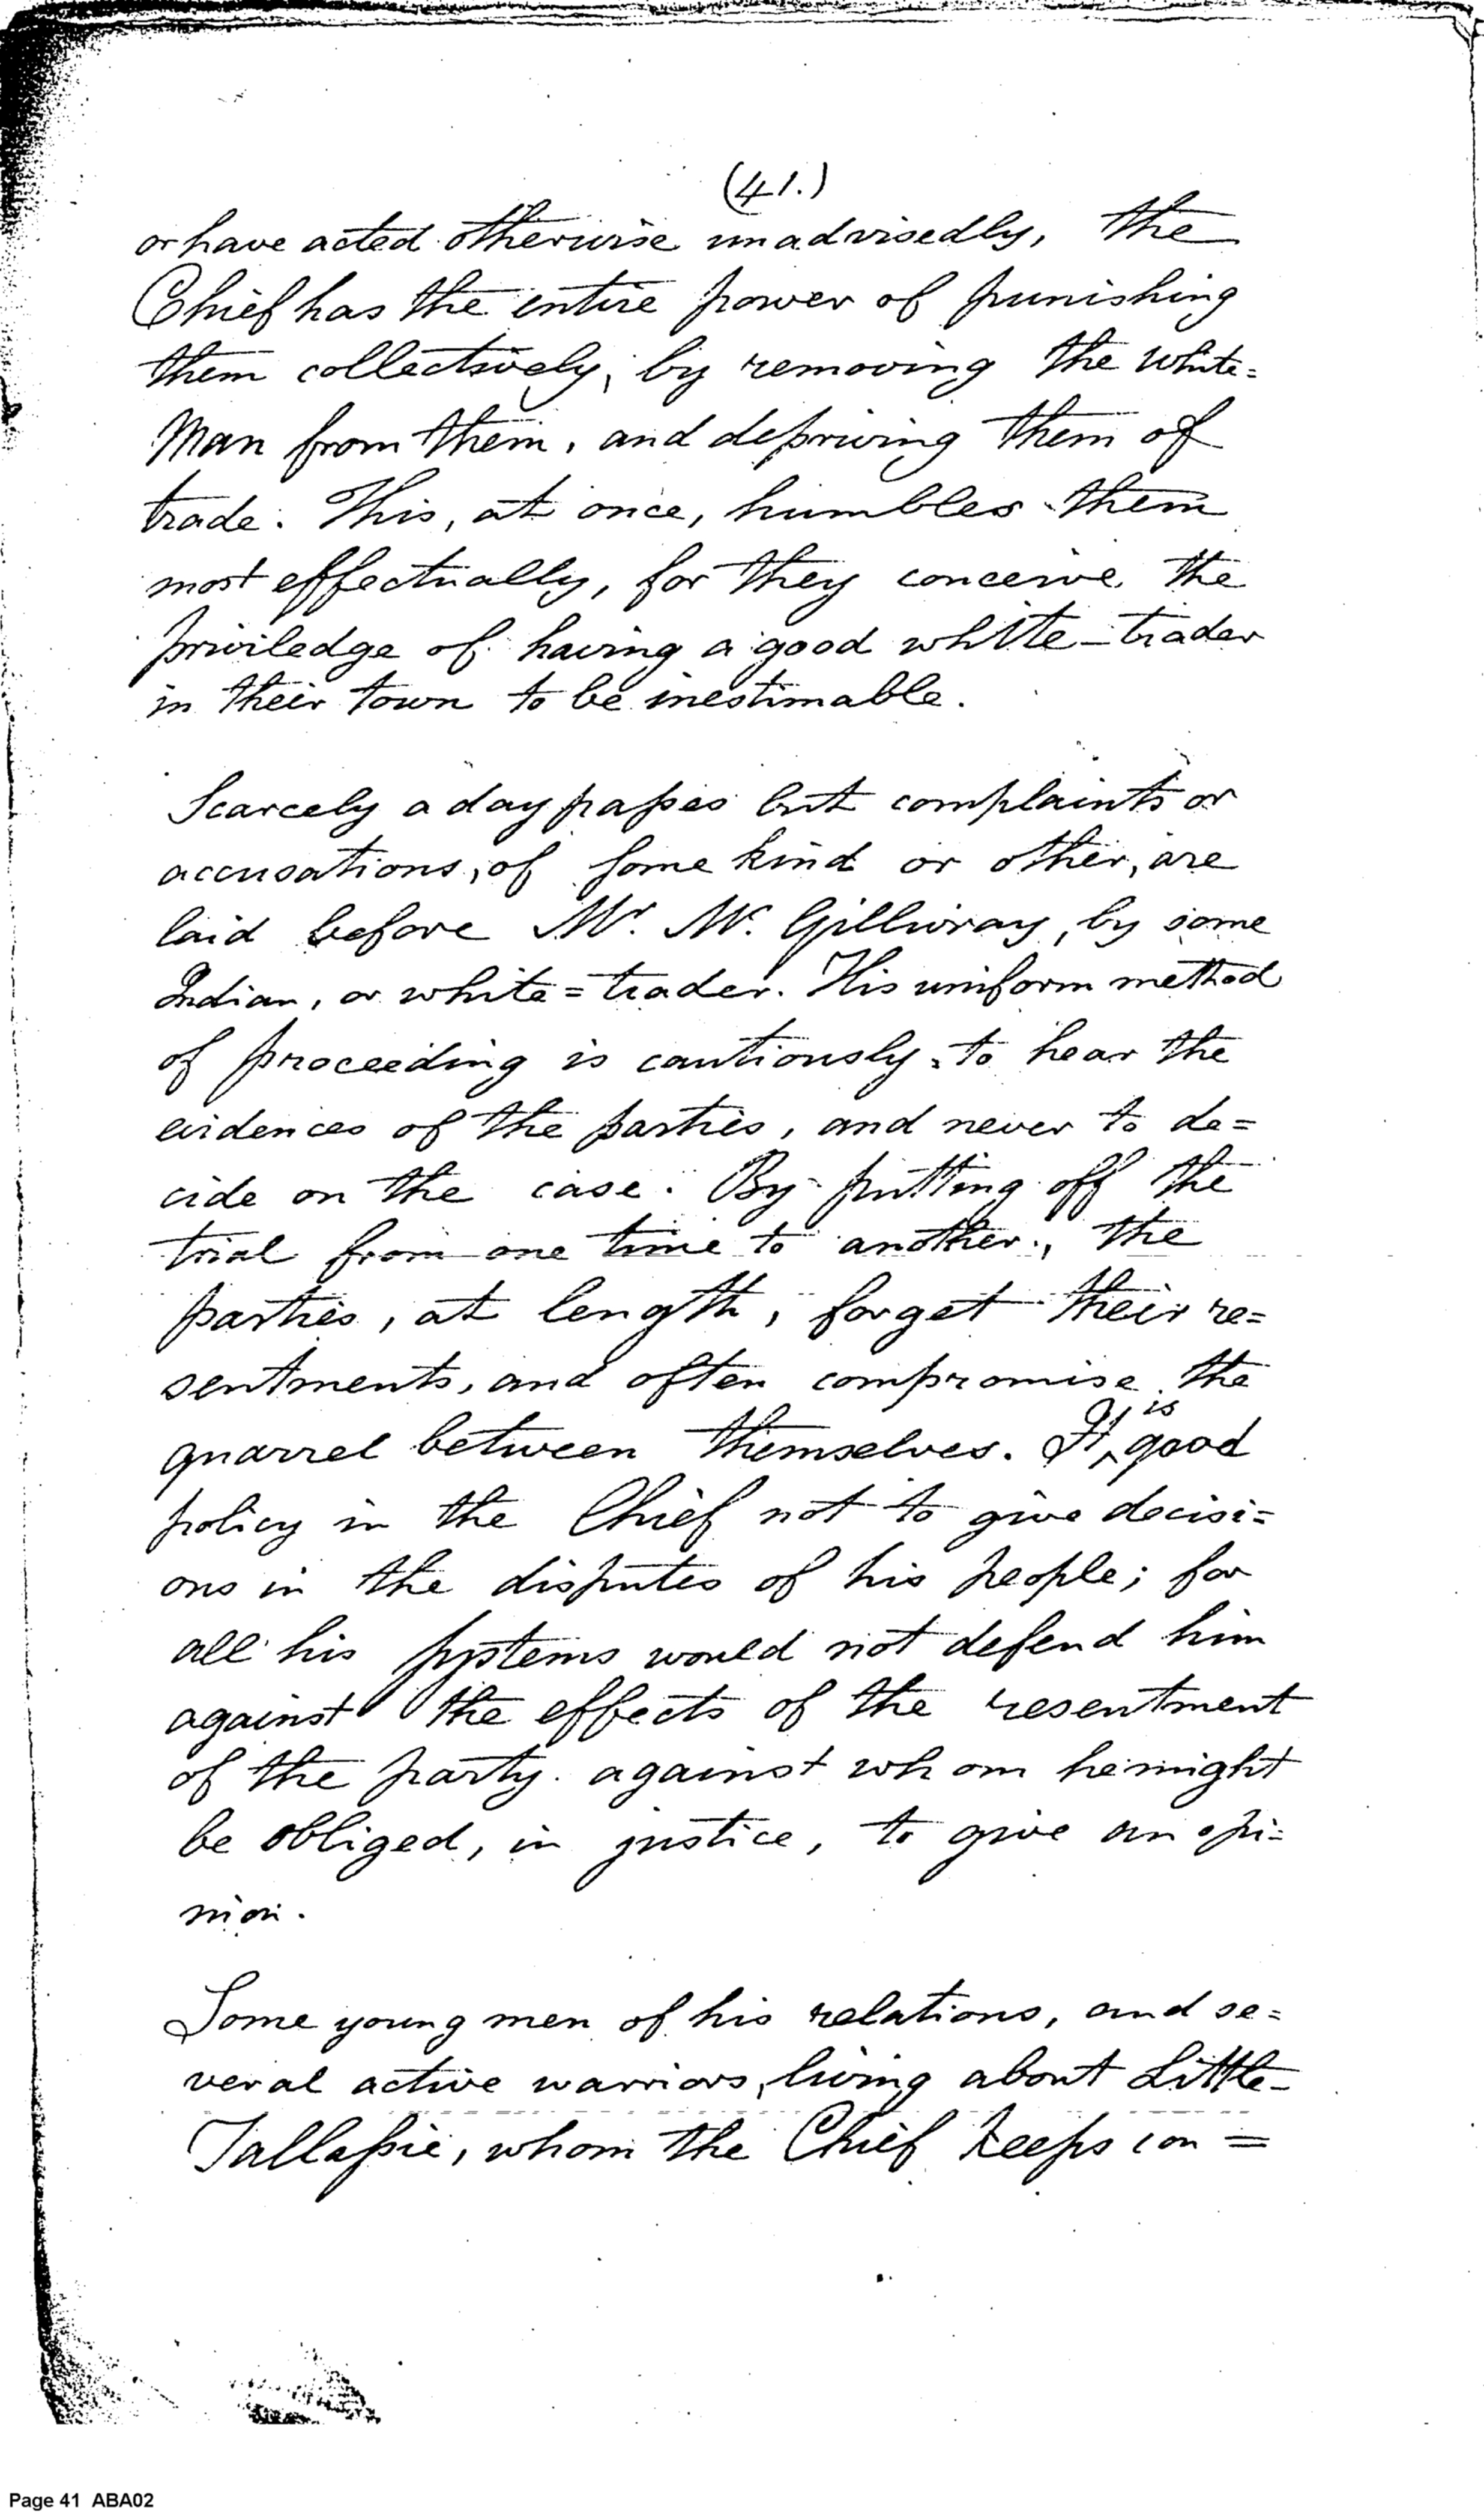 (41.)
or have acted otherwise unadvisedly, the
Chief has the entire power of punishing
them collectively, by removing the white=
Man from them, and depriving them of
trade. This, at once, humbles them
most effectually, for they conceive the
priviledge of having a good white-trader
in their town to be inestimable.
Scarcely a day passes but complaints or
accusations, of some kind or other, are
laid before Mr. Mc. Gillivray, by some
Indian, or white=trader. His uniform method
of proceeding is cautiously to hear the
evidences of the parties, and never to de=
cide on the case. By putting off the
trial from one time to another, the
parties, at length, forget their re=
sentments, and often compromise the
quarrel between themselves. It is good
policy in the Chief not to give decisi=
ons in the disputes of his people; for
all his systems would not defend him
against the effects of the resentment
of the party against whom he might
be obliged, in justice, to give an opi=
nion.
Some young men of his relations, and se=
veral active warriors, living about Little-
Tallassie, whom the Chief keeps con=
Page 41 ABA02